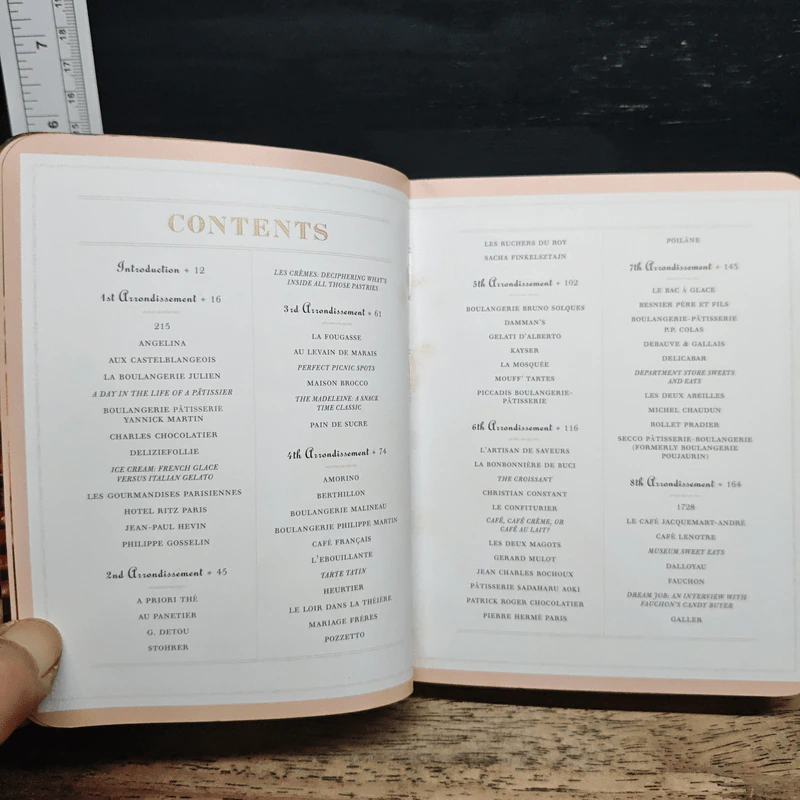 7
6
18
17
16
15
CONTENTS
Introduction + 12
1st Arrondissement + 16
215
ANGELINA
AUX CASTELBLANGEOIS
LA BOULANGERIE JULIEN
A DAY IN THE LIFE OF A PÂTISSIER
BOULANGERIE PÂTISSERIE
YANNICK MARTIN
CHARLES CHOCOLATIER
DELIZIEFOLLIE
ICE CREAM: FRENCH GLACE
VERSUS ITALIAN GELATO
LES GOURMANDISES PARISIENNES
HOTEL RITZ PARIS
JEAN-PAUL HEVIN
PHILIPPE GOSSELIN
2nd Arrondissement + 45
A PRIORI THÉ
AU PANETIER
G. DETOU
STOHRER
LES CRÈMES: DECIPHERING WHAT'S
INSIDE ALL THOSE PASTRIES
3rd Arrondissement + 61
LA FOUGASSE
AU LEVAIN DE MARAIS
PERFECT PICNIC SPOTS
MAISON BROCCO
THE MADELEINE: A SNACK
TIME CLASSIC
PAIN DE SUCRE
4th Arrondissement + 74
AMORINO
BERTHILLON
BOULANGERIE MALINEAU
BOULANGERIE PHILIPPE MARTIN
CAFÉ FRANÇAIS
L'EBOUILLANTE
TARTE TATIN
HEURTIER
LE LOIR DANS LA THÉIÈRE
MARIAGE FRÈRES
POZZETTO
LES RUCHERS DU ROY
SACHA FINKELSZTAJN
5th Arrondissement + 102
BOULANGERIE BRUNO SOLQUES
DAMMAN'S
GELATI D'ALBERTO
KAYSER
LA MOSQUÉE
MOUFF' TARTES
PICCADIS BOULANGERIE-
PÂTISSERIE
6th Arrondissement + 116
L'ARTISAN DE SAVEURS
LA BONBONNIÈRE DE BUCI
THE CROISSANT
CHRISTIAN CONSTANT
LE CONFITURIER
CAFÉ, CAFÉ CRÈME, OR
CAFÉ AU LAIT?
LES DEUX MAGOTS
GERARD MULOT
JEAN CHARLES ROCHOUX
PÂTISSERIE SADAHARU AOKI
PATRICK ROGER CHOCOLATIER
PIERRE HERMÉ PARIS
POILÂNE
7th Arrondissement + 145
LE BAC À GLACE
BESNIER PÈRE ET FILS
BOULANGERIE-PÂTISSERIE
P.P. COLAS
DEBAUVE & GALLAIS
DELICABAR
DEPARTMENT STORE SWEETS
AND EATS
LES DEUX ABEILLES
MICHEL CHAUDUN
ROLLET PRADIER
SECCO PÂTISSERIE-BOULANGERIE
(FORMERLY BOULANGERIE
POUJAURIN)
8th Arrondissement + 164
1728
LE CAFÉ JACQUEMART-ANDRÉ
CAFÉ LENOTRE
MUSEUM SWEET EATS
DALLOYAU
FAUCHON
DREAM JOB: AN INTERVIEW WITH
FAUCHON'S CANDY BUYER
GALLER